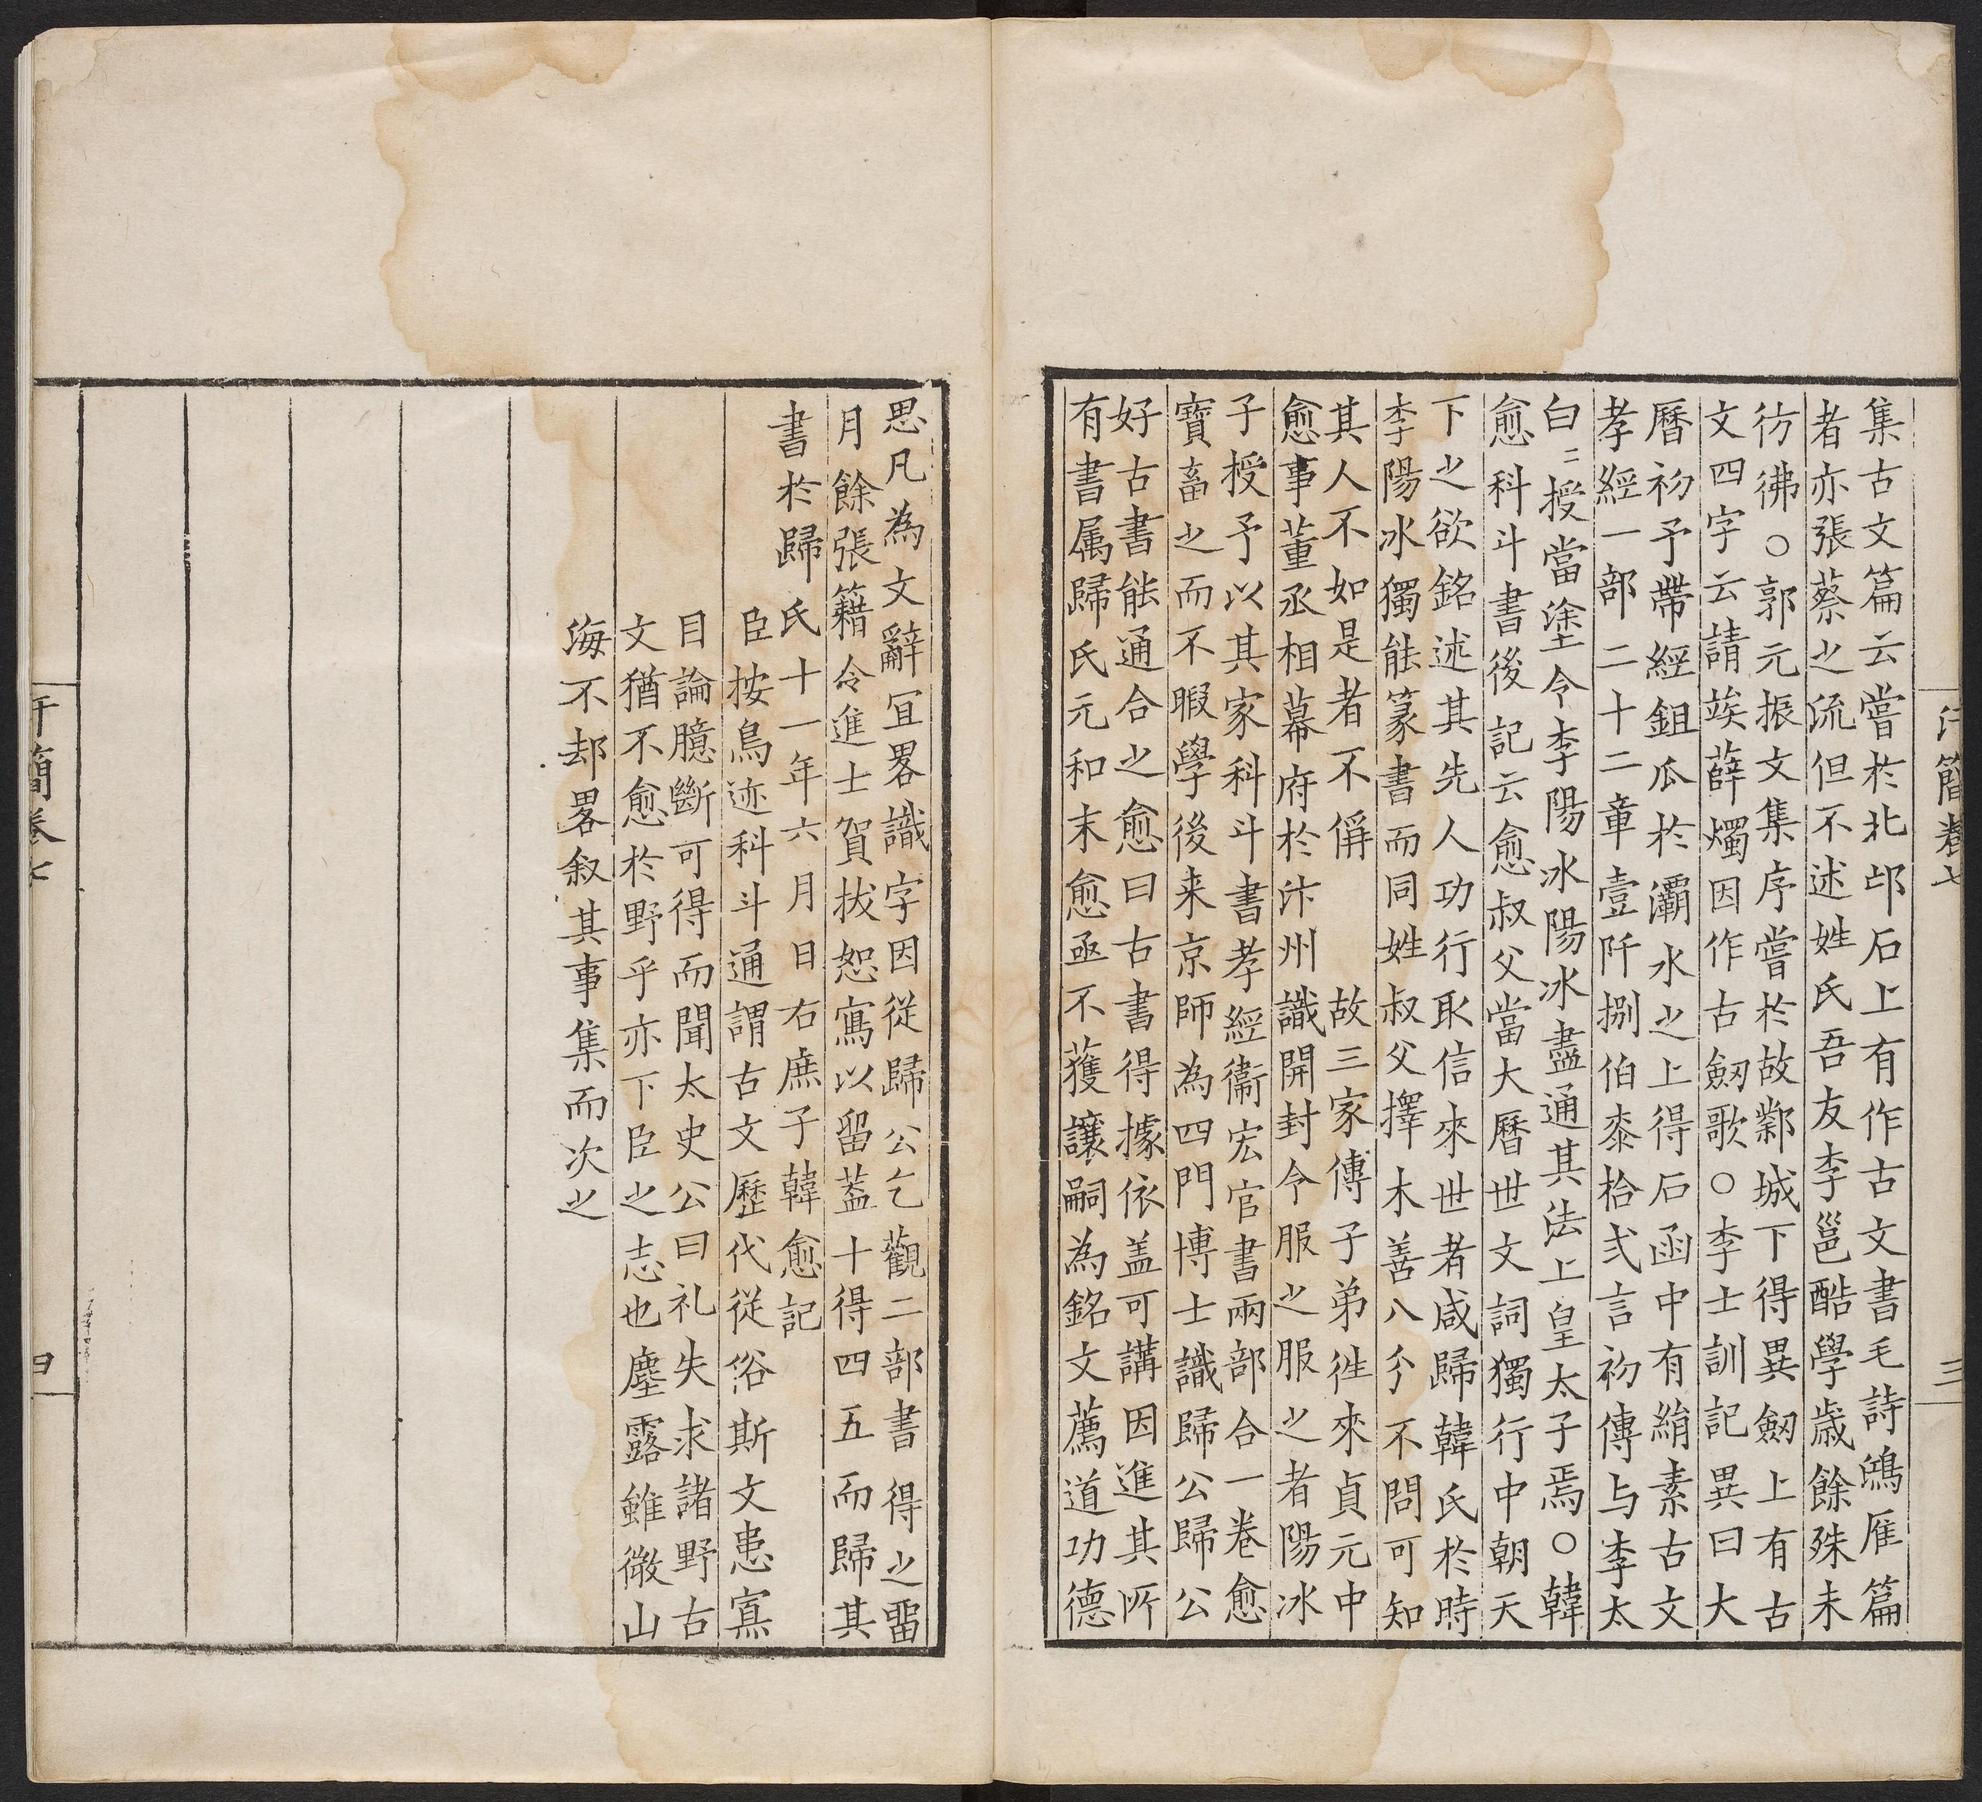 汗簡卷七
三
集古文篇云嘗於北邙石上有作古文書毛詩鴻雁篇
者亦張蔡之流但不述姓氏吾友李邕酷學歲餘殊未
彷彿○郭元振文集序嘗於故鄴城下得異劔上有古
文四字云請俟薛燭因作古劔歌○李士訓記異曰大
曆初予帶經鉏瓜於灞水之上得石函中有絹素古文
孝經一部二十二章壹阡捌伯桼拾弍言初傳与李太
白〻授當塗令李陽冰陽冰盡通其法上皇太子焉○韓
愈科斗書後記云愈叔父當大曆世文詞獨行中朝天
下之欲銘述其先人功行取信來世者咸歸韓氏於時
李陽冰獨能篆書而同姓叔父擇木善八分不問可知
其人不如是者不偁故三家傳子弟徃來貞元中
愈事董丞相幕府於汴州識開封令服之服之者陽冰
子授予以其家科斗書孝經衞宏官書兩部合一卷愈
寶畜之而不暇學後来京師為四門博士識歸公歸公
好古書能通合之愈曰古書得據依盖可講因進其所
有書属歸氏元和末愈亟不獲讓嗣為銘文薦道功德
思凡為文辭冝畧識字因從歸公乞觀二部書得之畱
月餘張籍令進士賀拔恕寫以留蓋十得四五而歸其
書於歸氏十一年六月日右庶子韓愈記
臣按鳥迹科斗通謂古文歷代從俗斯文患寡
目論臆斷可得而聞太史公曰礼失求諸野古
文猶不愈於野乎亦下臣之志也塵露雖微山
海不却畧叙其事集而次之
汗簡卷七
四